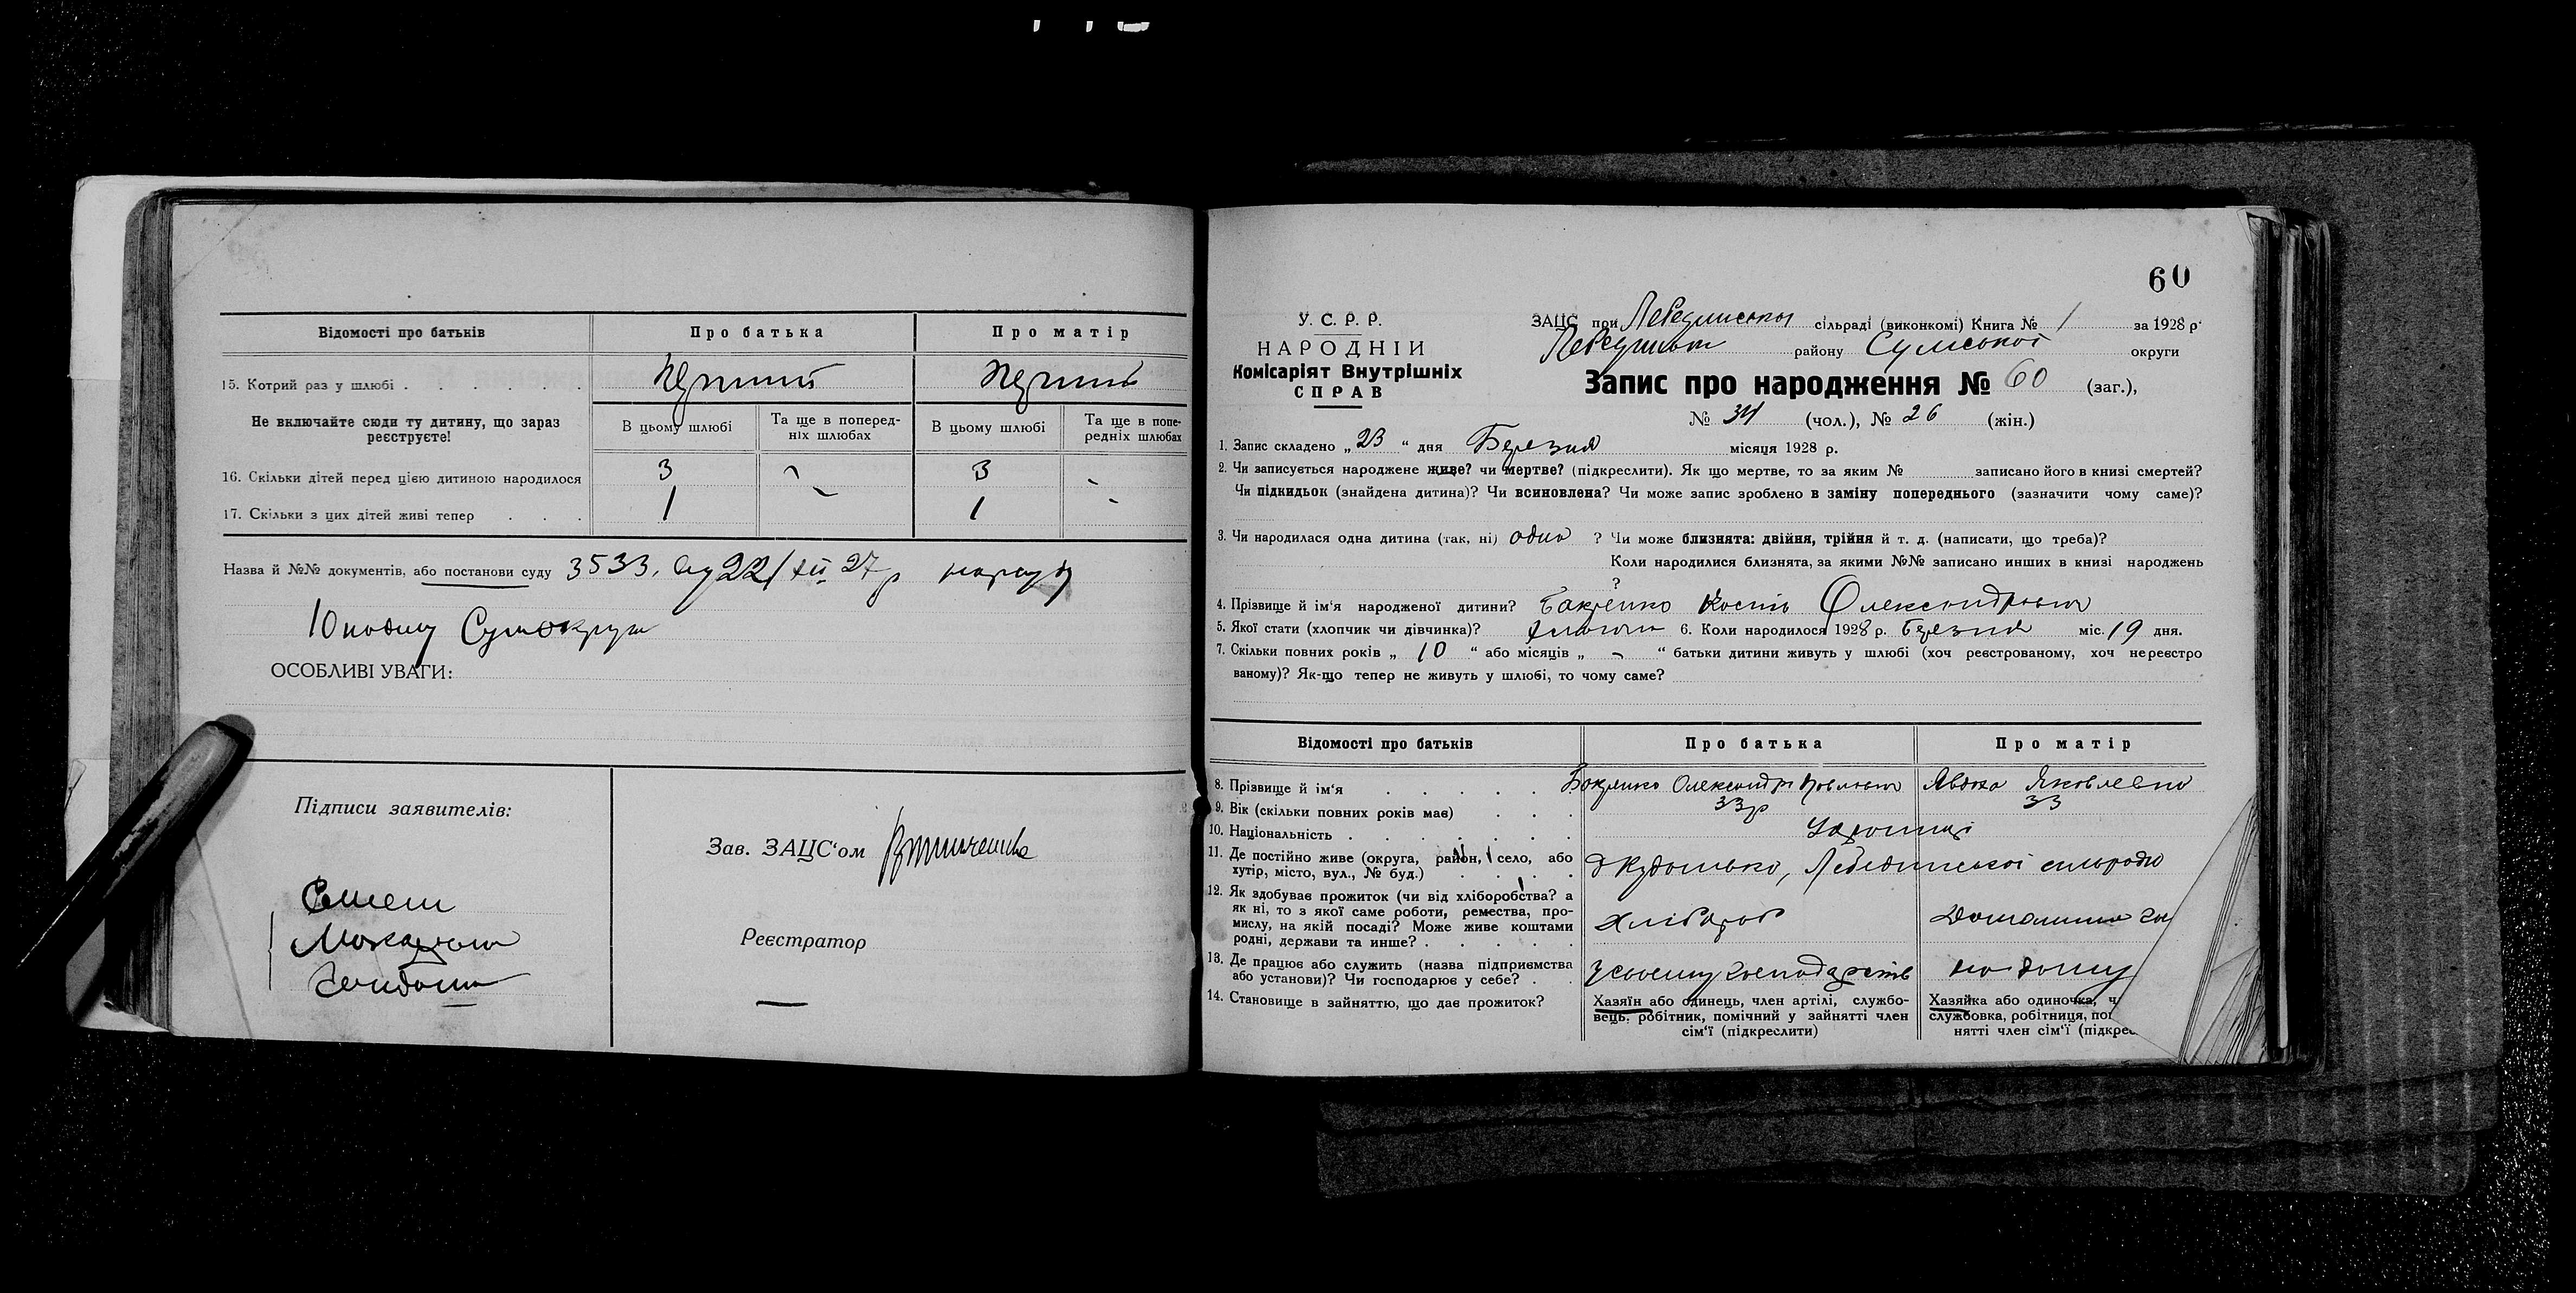 Відомості про батьків
Про батька
Про матір
15. Котрий раз у шлюбі
Перший
Перший
Не включайте сюди ту дитину, що зараз реєструєте!
В цьому шлюбі
Та ще в попередніх шлюбах
В цьому шлюбі
Та ще в попередніх шлюбах
16. Скільки дітей перед цією дитиною народилося
3
3
17. Скільки з цих дітей живі тепер
1
1
Назва й №№ документів, або постанови суду 3533, 22/XII 27р
ОСОБЛИВІ УВАГИ:
Підписи заявителів:
Зав. ЗАЦС'ом
Реєстратор
60
У. С. Р. Р.
НАРОДНІЙ
Комісаріят Внутрішніх
СПРАВ
ЗАЦС при Лебединської сільраді (виконкомі) Книга № 1 за 1928 р.
району Сумської округи
Запис про народження № 60 (заг.),
№ 34 (чол.), № 26 (жін.)
1. Запис складено „23" дня Березня місяця 1928 р.
2. Чи записується народжене живе? чи мертве? (підкреслити). Як що мертве, то за яким № записано його в книзі смертей?
Чи підкидьок (знайдена дитина)? Чи всиновлена? Чи може запис зроблено в заміну попереднього (зазначити чому саме)?
3. Чи народилася одна дитина (так, ні) одна ? Чи може близнята: двійня, трійня й т. д. (написати, що треба)?
Коли народилися близнята, за якими №№ записано инших в книзі народжень
?
4. Прізвище й ім'я народженої дитини? Кость Олександрович
5. Якої стати (хлопчик чи дівчинка)? 6. Коли народилося 1928 р. Березня міс. 19 дня.
7. Скільки повних років „10" або місяців „-" батьки дитини живуть у шлюбі (хоч реєстрованому, хоч нереєстро
ваному)? Як-що тепер не живуть у шлюбі, то чому саме?
Відомості про батьків
Про батька
Про матір
8. Прізвище й ім'я
Олександр Павлович
Явдоха Яковлевна
9. Вік (скільки повних років має)
33р
33
10. Національність
Українці
11. Де постійно живе (округа, район, село, або
хутір, місто, вул., № буд.)
Лебединської сільради
12. Як здобуває прожиток (чи від хліборобства? а
як ні, то з якої саме роботи, ремества, про-
мислу, на якій посаді? Може живе коштами
родні, держави та инше?
Хлібороб
Домашня
13. Де працює або служить (назва підприємства
або установи)? Чи господарює у себе?
У своєму господарстві
по дому
14. Становище в зайняттю, що дає прожиток?
Хазяїн або одинець, член артілі, службо-
вець, робітник, помічний у зайнятті член
сім'ї (підкреслити)
Хазяйка або одиночка, ч
службовка, робітниця, пог
нятті член сім'ї (підкрес